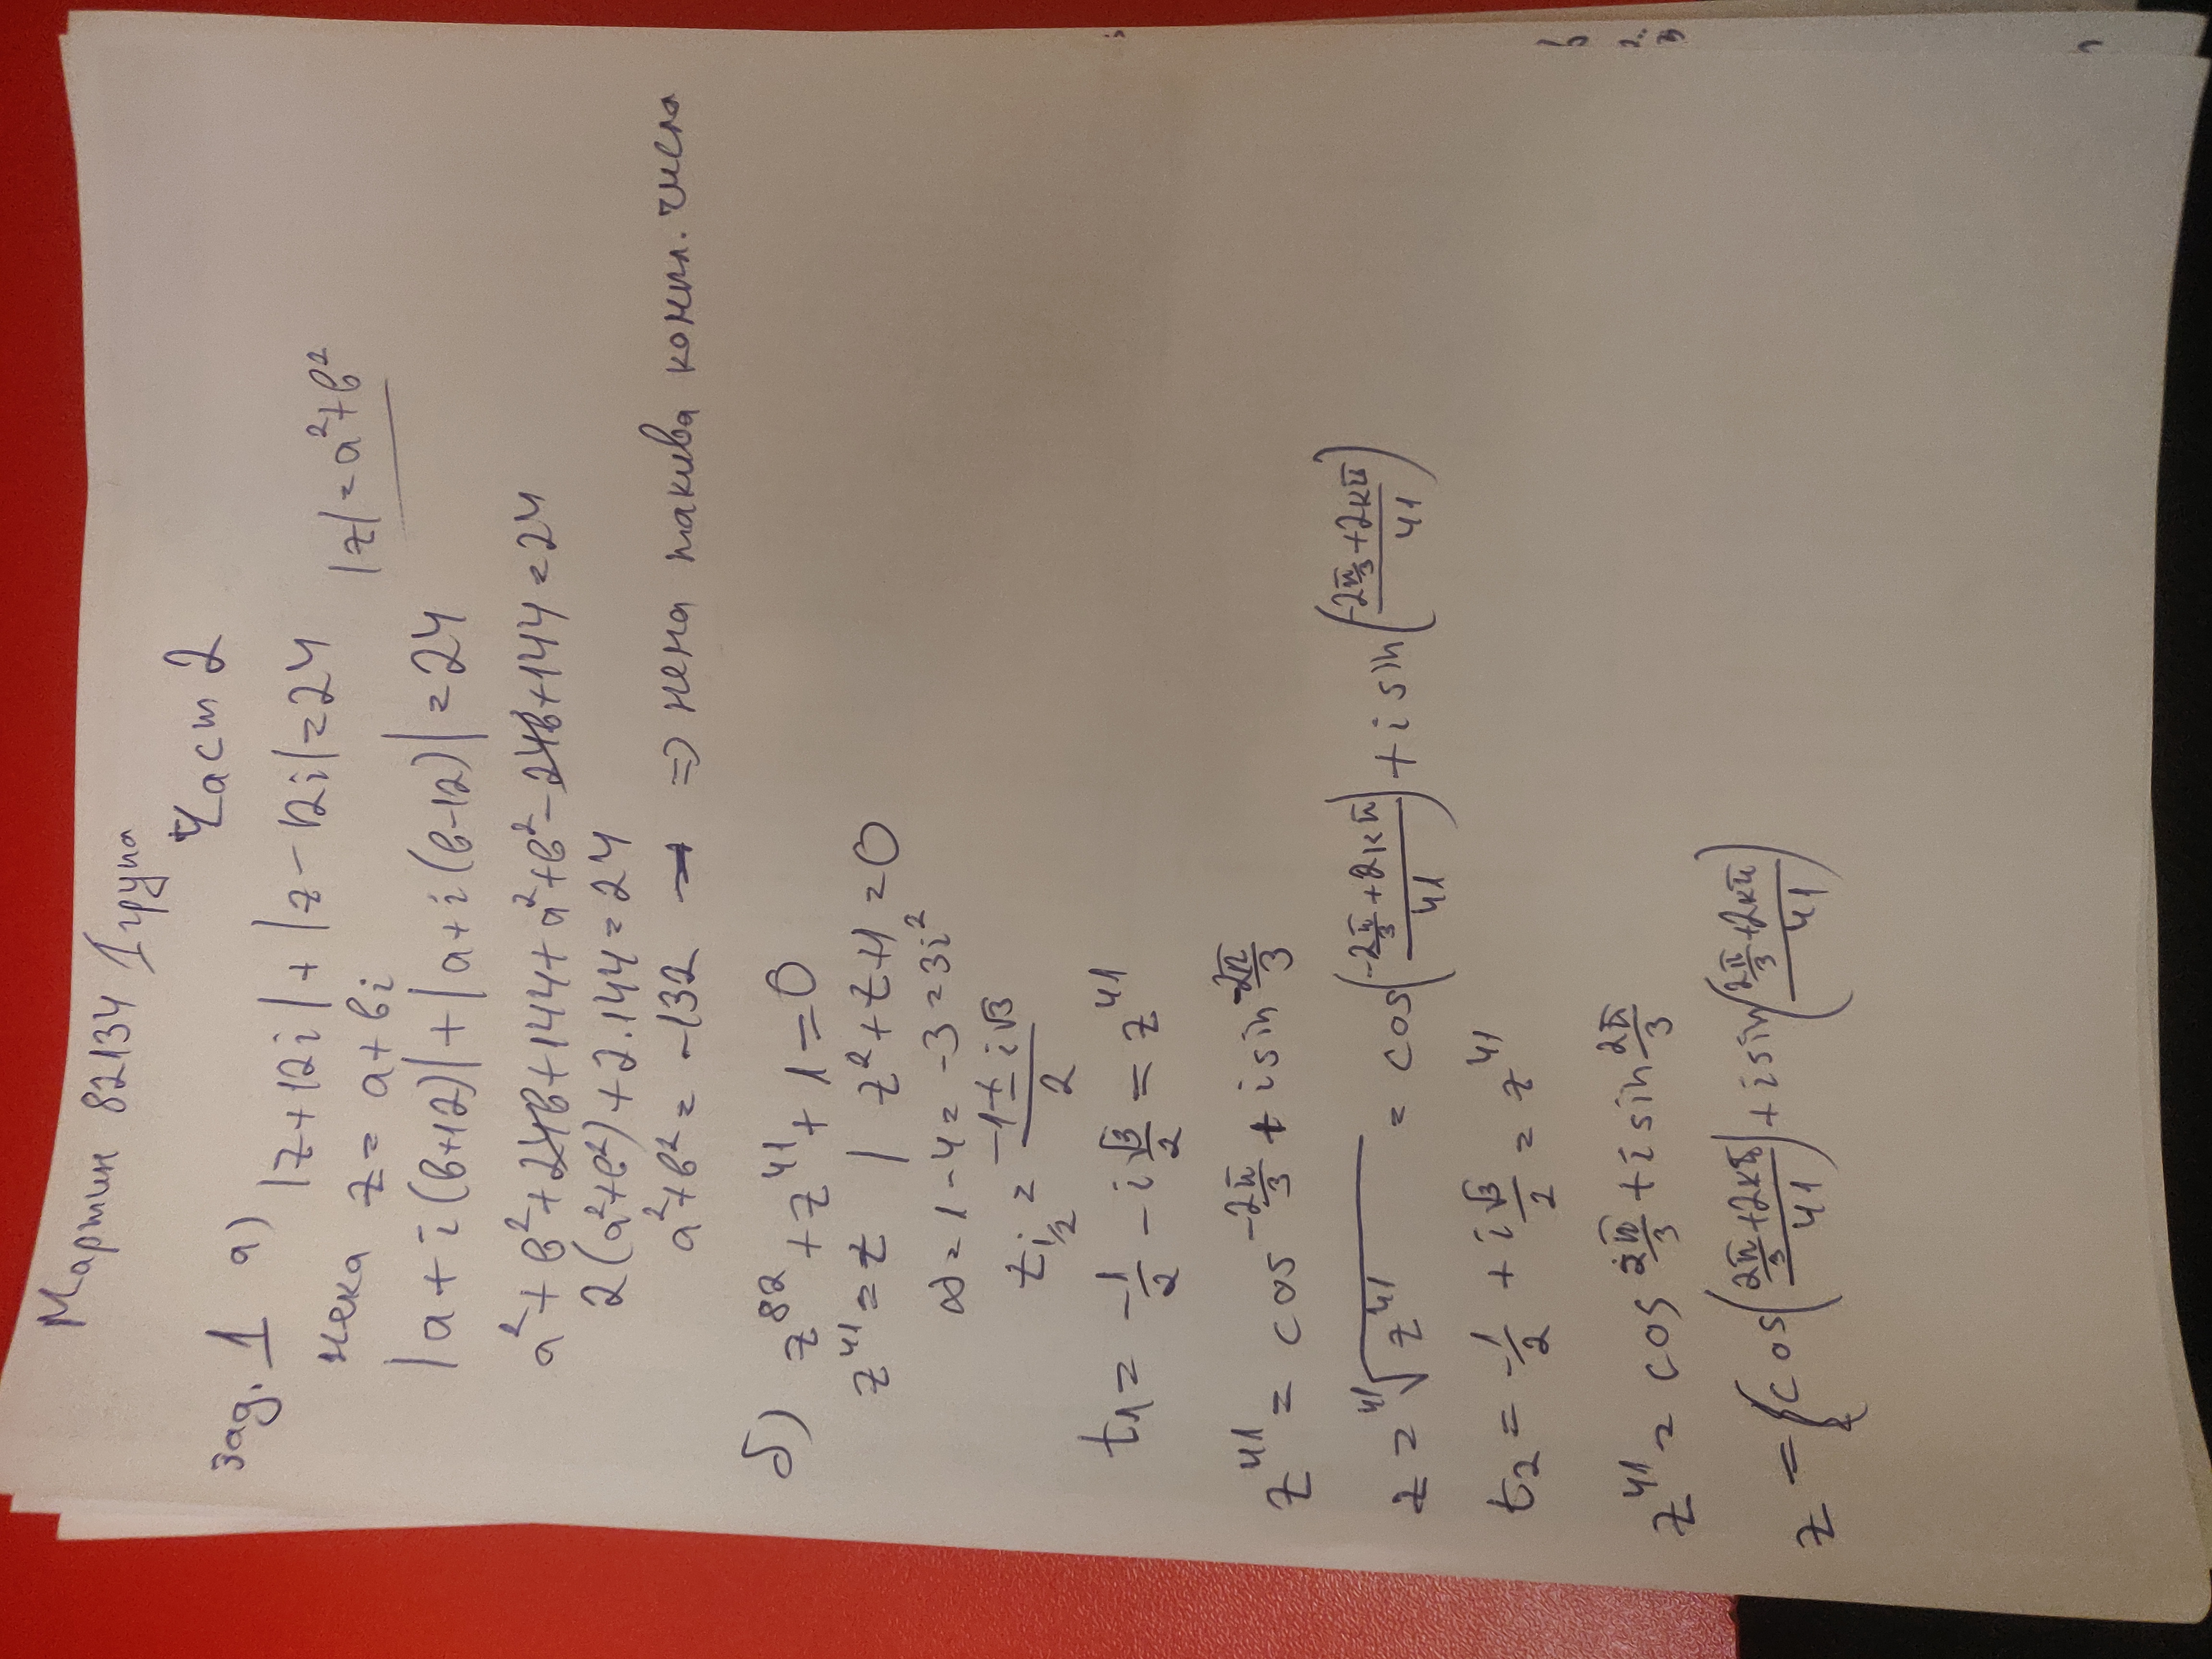 Мартин 82134 1 група
Част 2
Зад. 1 а) |z+12i|+|z-12i|=24
нека z= a+bi |z|=a²+b²
|a+i(b+12)|+|a+i(b-12)|=24
a²+b²+24b+144+a²+b²-24b+144=24
2(a²+b²)+2.144=24
a²+b²=-132 => нема такива компл. числа
б) z⁸²+z⁴¹+1=0
z⁴¹=t | t²+t+1=0
D=1-4=-3=3i²
t₁/₂=(-1±i√3)/2
t₁=-1/2-i√3/2=z⁴¹
z⁴¹=cos -2π/3+i sin -2π/3
z=⁴¹√z⁴¹ = cos((-2π/3+2kπ)/41)+i sin((-2π/3+2kπ)/41)
t₂=-1/2+i√3/2=z⁴¹
z⁴¹=cos 2π/3+i sin 2π/3
z={cos((2π/3+2kπ)/41)+i sin((2π/3+2kπ)/41)